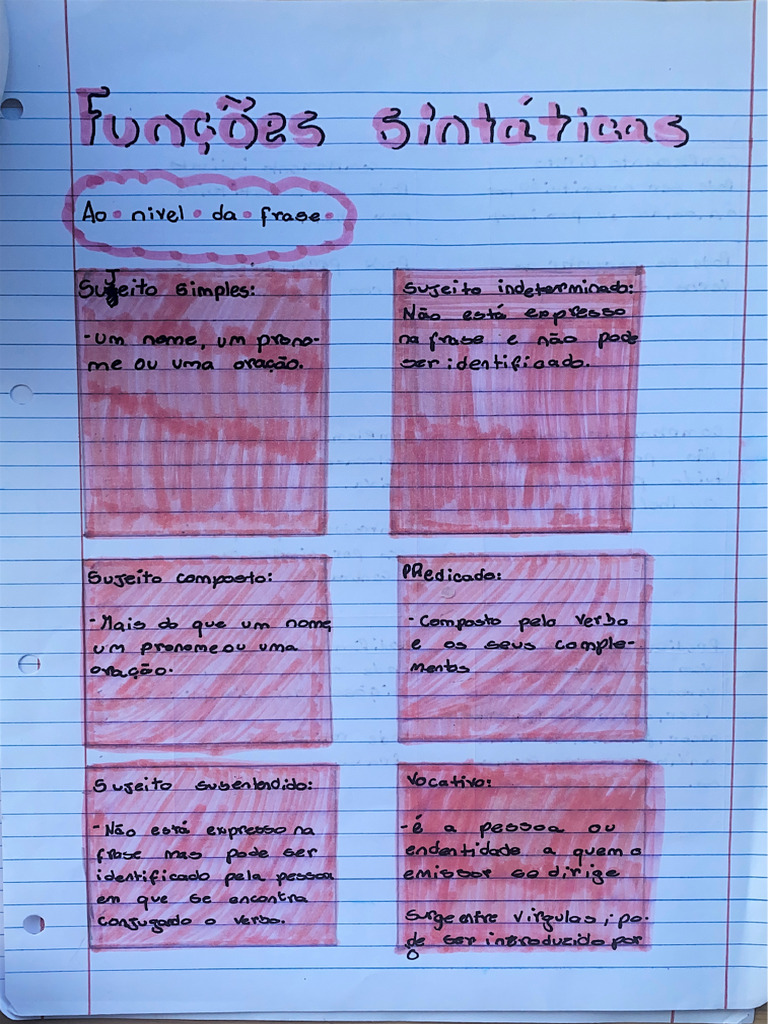 Funções sintáticas
Ao nivel da frase
Sujeito simples:
-um nome, um prono-
me ou uma oração.
Sujeito indeterminado:
Não está expresso
na frase e não pode
ser identificado.
Sujeito composto:
-Mais do que um nome,
um pronome ou uma
oração.
PRedicado:
-Composto pelo verbo
e os seus comple-
mentos
Sujeito subentendido:
-Não está expresso na
frase mas pode ser
identificado pela pessoa
em que se encontra
conjugardo o verbo.
Vocativo:
-é a pessoa ou
endentidade a quem o
emissor se dirige
Surge entre virgulas, po-
de ser introduzido por
Ó